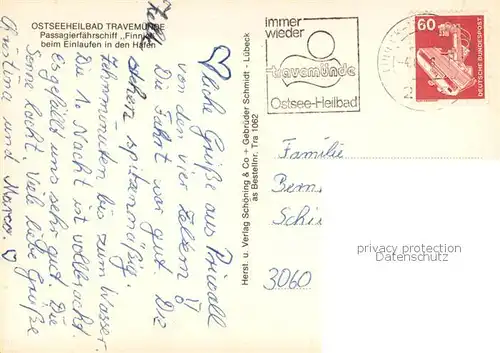 OSTSEEHEILBAD TRAVEMÜNDE
Passagierfährschiff „Finn
beim Einlaufen in den Hafen
liche Grüße aus Priwall
von den vier Zelbern!!
Die Fahrt war gut. Die
stehen spitzenmäßig.
Zehnminuten bis zum Wasser.
Die 1. Nacht ist vollbracht.
es gefällt uns sehr gut. Die
Sonne lacht. Viele liebe Grüße
Kristina und Marco.
Herst. u. Verlag Schöning & Co - Gebrüder Schmidt - Lübeck
as Bestellnr. Tra 1062
Immer
wieder
travemünde
Ostsee-Heilbad
60
DEUTSCHE BUNDESPOST
Familie
Bern
Schi
3060
privacy protection
watermark